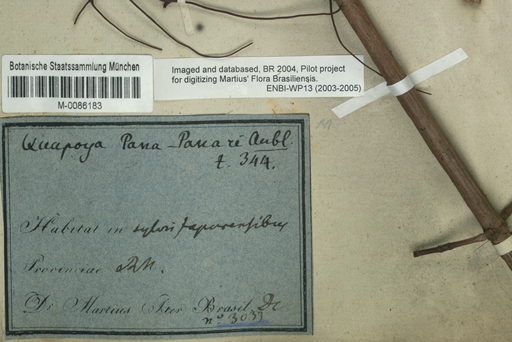 Botanische Staatssammlung München
M-0086183
Imaged and databased, BR 2004, Pilot project
for digitizing Martius' Flora Brasiliensis.
ENBI-WP13 (2003-2005)
Quapoya Pana-Panari Aubl.
t. 344.
Habitat in sylvis japurensibus
Provinciae R. N.
Dr. Martius Iter Brasil.
nº 3033